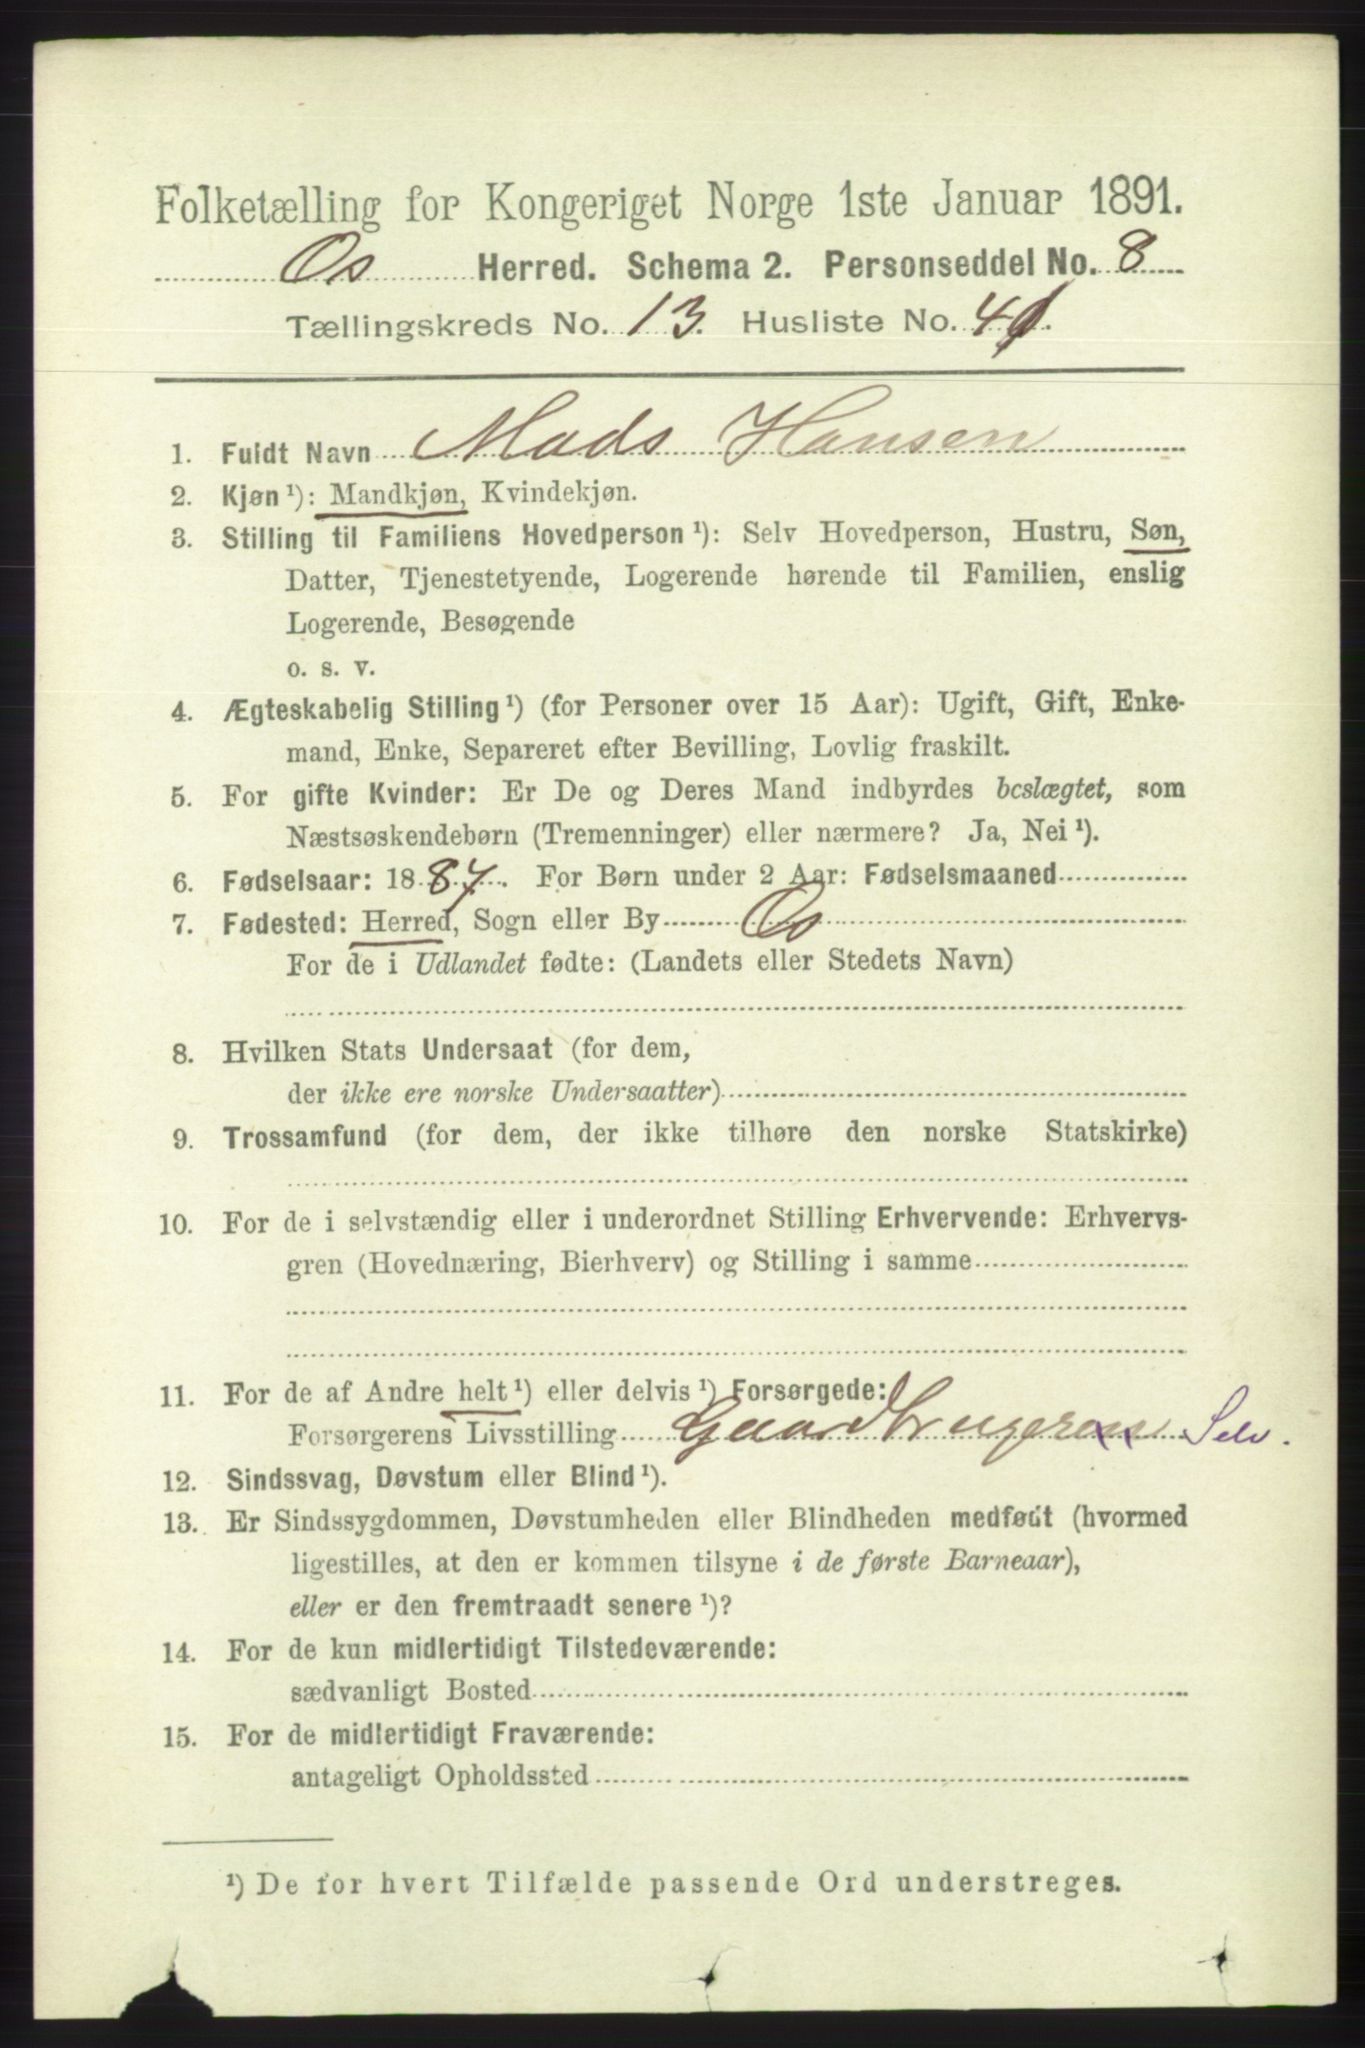 Folketælling for Kongeriget Norge 1ste Januar 1891.
Os Herred. Schema 2. Personseddel No. 8
Tællingskreds No. 13. Husliste No. 41.
1. Fuldt Navn Mads Hansen
2. Kjøn¹): Mandkjøn, Kvindekjøn.
3. Stilling til Familiens Hovedperson¹): Selv Hovedperson, Hustru, Søn,
Datter, Tjenestetyende, Logerende hørende til Familien, enslig
Logerende, Besøgende
o. s. v.
4. Ægteskabelig Stilling¹) (for Personer over 15 Aar): Ugift, Gift, Enke-
mand, Enke, Separeret efter Bevilling, Lovlig fraskilt.
5. For gifte Kvinder: Er De og Deres Mand indbyrdes beslægtet, som
Næstsøskendebørn (Tremenninger) eller nærmere? Ja, Nei¹).
6. Fødselsaar: 1887. For Børn under 2 Aar: Fødselsmaaned
7. Fødested: Herred, Sogn eller By Os
For de i Udlandet fødte: (Landets eller Stedets Navn)
8. Hvilken Stats Undersaat (for dem,
der ikke ere norske Undersaatter)
9. Trossamfund (for dem, der ikke tilhøre den norske Statskirke)
10. For de i selvstændig eller i underordnet Stilling Erhvervende: Erhvervs-
gren (Hovednæring, Bierhverv) og Stilling i samme
11. For de af Andre helt¹) eller delvis¹) Forsørgede:
Forsørgerens Livsstilling Gaardbrugeren Selv.
12. Sindssvag, Døvstum eller Blind¹).
13. Er Sindssygdommen, Døvstumheden eller Blindheden medfødt (hvormed
ligestilles, at den er kommen tilsyne i de første Barneaar),
eller er den fremtraadt senere¹)?
14. For de kun midlertidigt Tilstedeværende:
sædvanligt Bosted
15. For de midlertidigt Fraværende:
antageligt Opholdssted
¹) De for hvert Tilfælde passende Ord understreges.